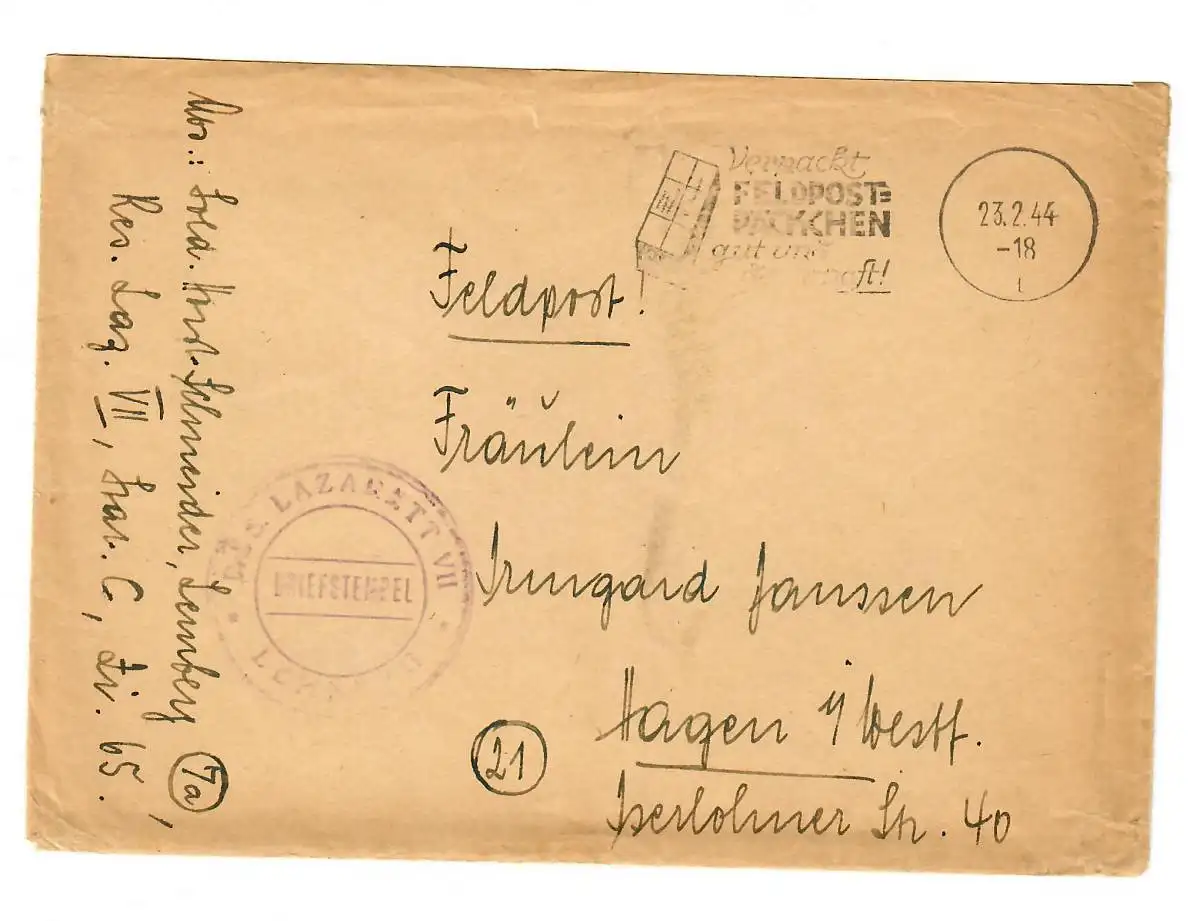 Verpackt
FELDPOST=
PÄCKCHEN
gut und
23.2.44
-18
Feldpost!
Fräulein
Irmgard Janssen
Hagen i/Westf.
Iserlohner Str. 40
21
RES. LAZARETT VII
BRIEFSTEMPEL
Abs.: Sold. Horst Schneider, Lemberg 7a,
Res. Laz. VII, Har. C, Zi. 65.